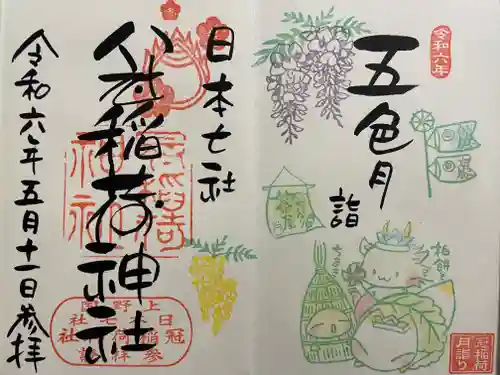 令和六年
五色月
詣
柏餅
冠稲荷
月詣り
日本七社
冠稲荷神社
令和六年五月十一日参拝
上野国
日本七社